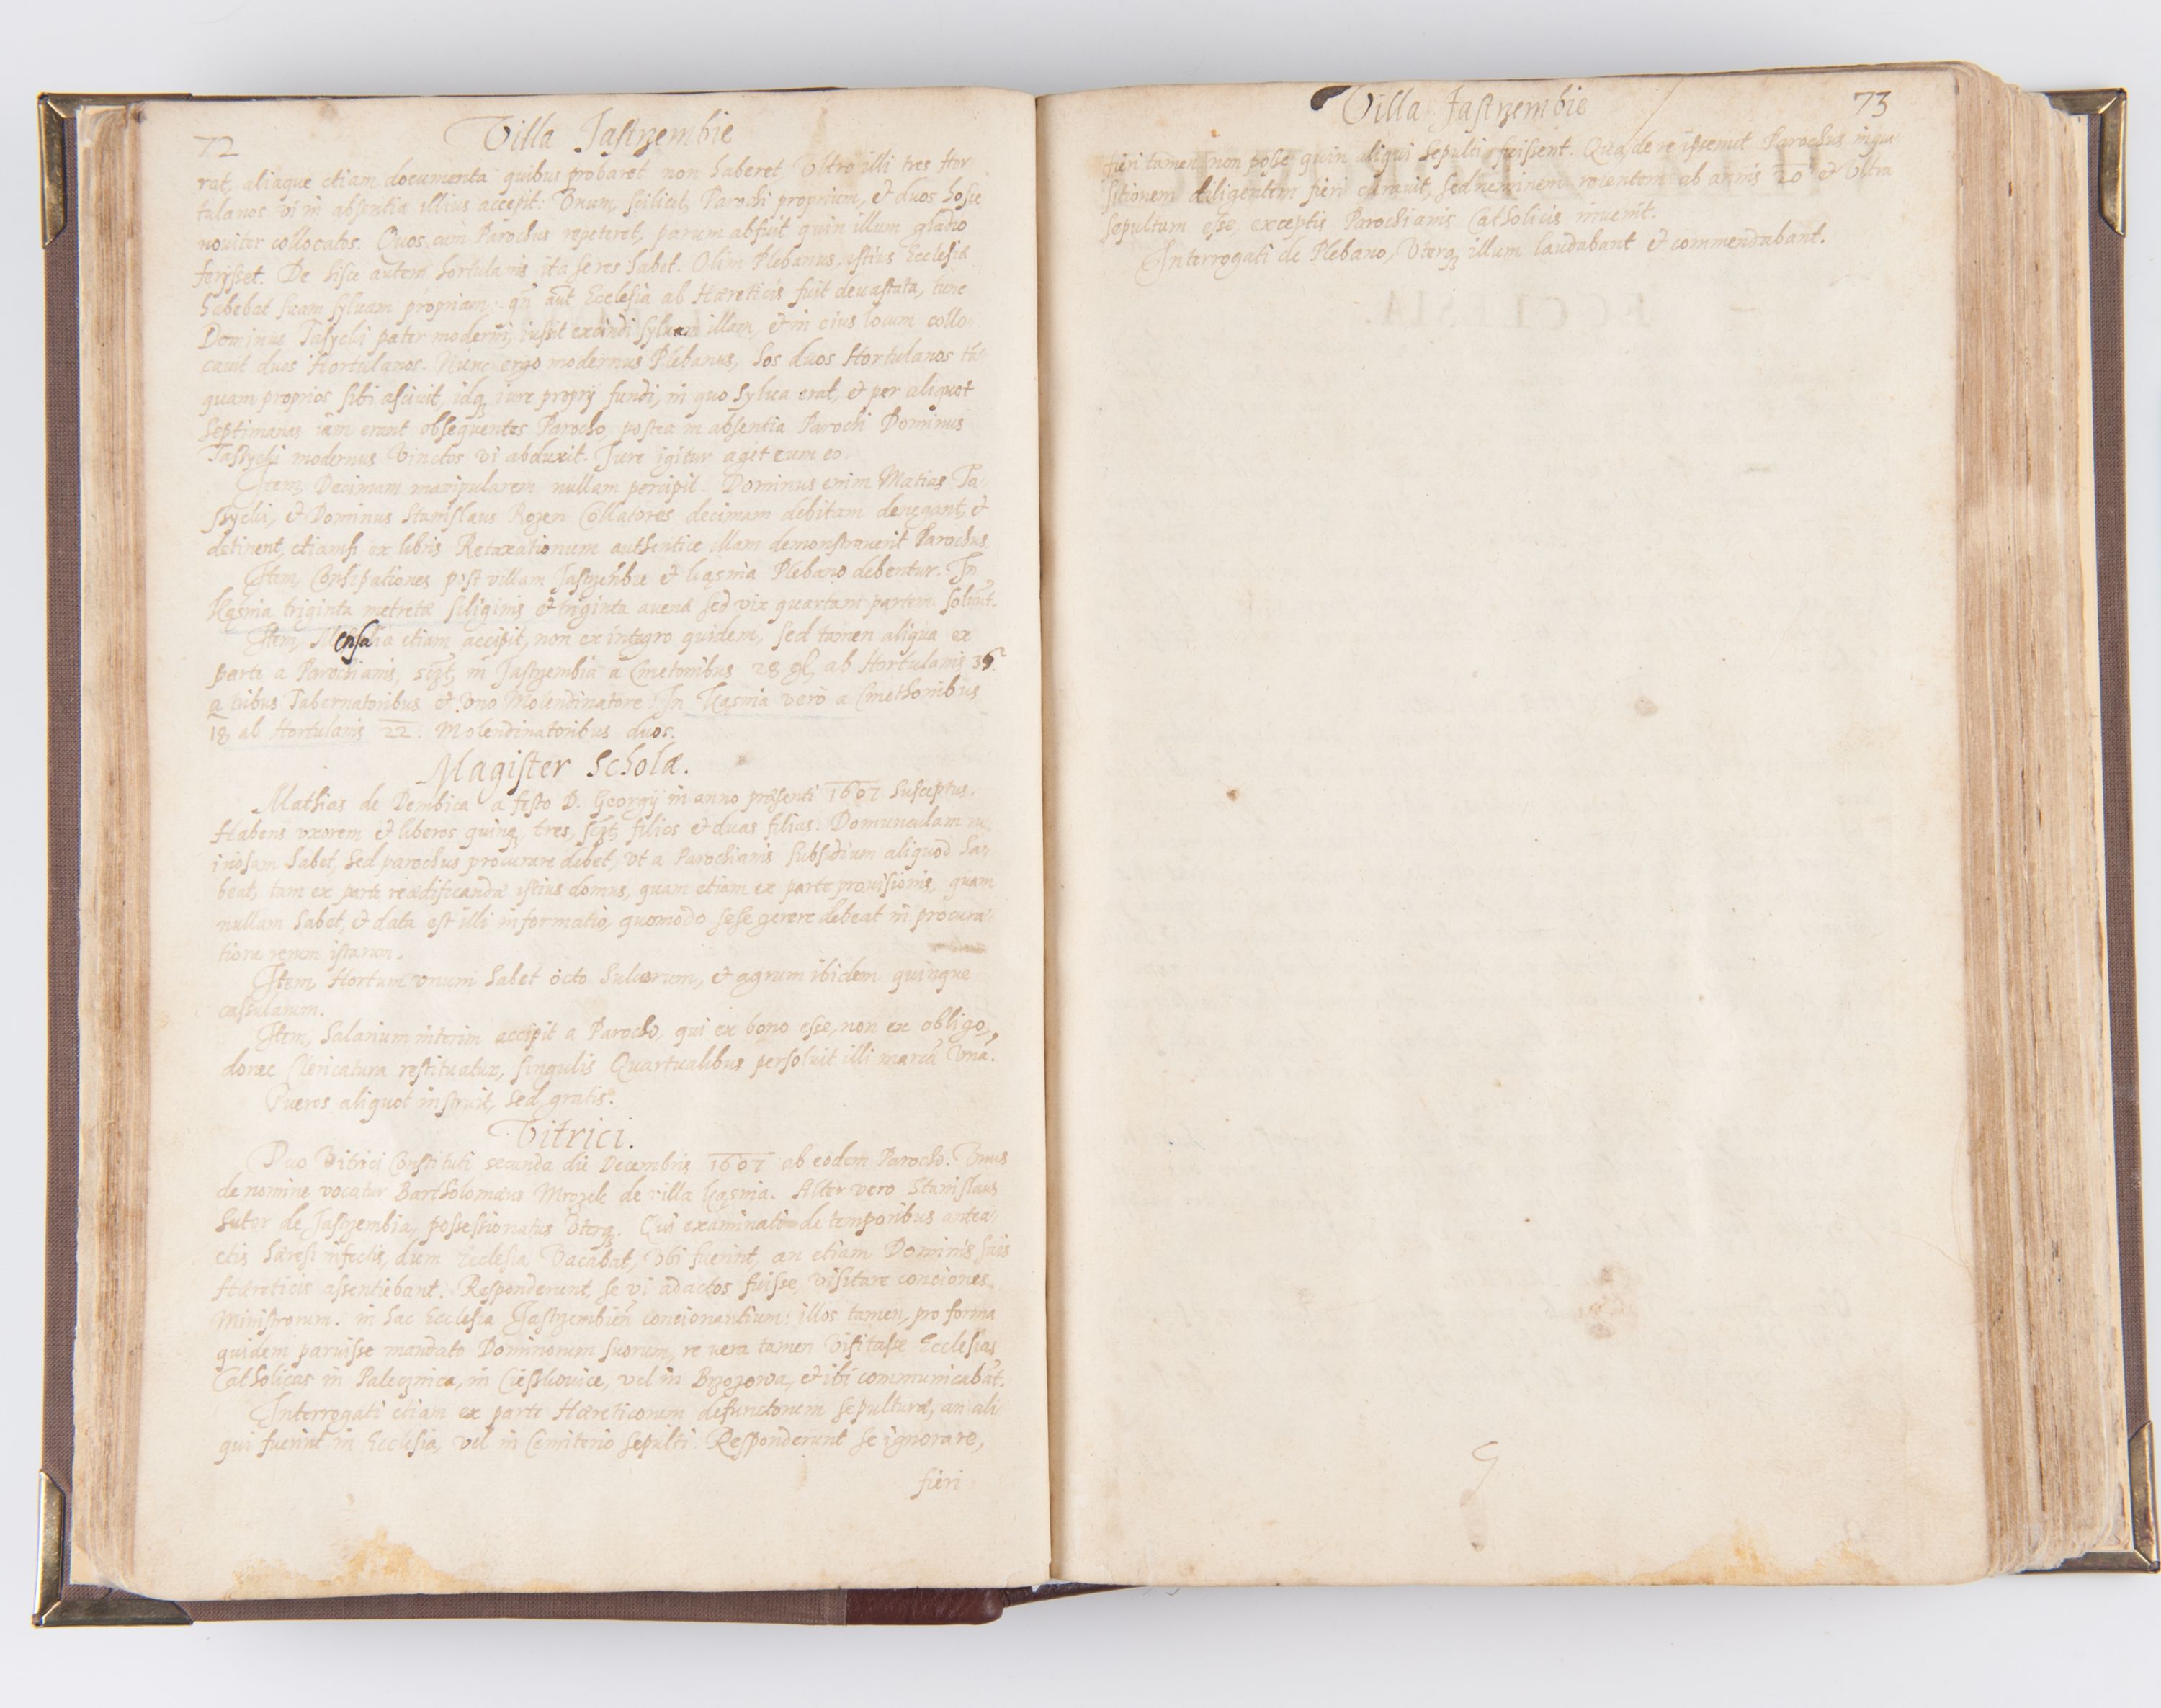 72
Villa Jastrzembie
rat, aliaque etiam documenta quibus probaret non haberet. Vltro illi tres Hor,
tulanos vi in absentia illius accepit: Vnum, scilicet, Parochi proprium, et duos hosce
nouiter collocatos. Quos cum Parochus repeteret, parum abfuit quin illum gladio
ferijsset. De hisce autem hortulanis ita se res habet. Olim Plebanus istius Ecclesiæ
habebat suam syluam propriam: qñ aut Ecclesia ab Hæreticis fuit deuastata, tunc
Dominus Taszycki pater moderni, iussit excindi syluam illam, et in eius locum collo,
cauit duos Hortulanos. Nunc ergo modernus Plebanus, hos duos Hortulanos tã,
quam proprios sibi asciuit, idq iure proprij fundi, in quo Sylua erat, et per aliquot
Septimanas iam erant obsequentes Parocho, postea in absentia Parochi Dominus
Taszycki modernus Vinctos vi abduxit. Jure igitur aget cum eo.
Item, Decimam manipularem nullam percipit. Dominus enim Matias Ta,
szycki, et Dominus Stanislaus Rozen Collatores decimam debitam denegant, et
detinent, etiamsi ex libris Retaxationum authentice illam demonstrauerit Parochus.
Item, Consipationes post villam Jastrzembie et Kąsnia Plebano debentur. In
Kąsnia triginta metretæ siliginis et triginta auenæ sed vix quartam partem soluũt.
Item, Mensalia etiam accipit, non ex integro quidem, sed tamen aliqua ex
parte a Parochianis, scilt, in Jastrzembia a Cmetonibus 28 gl, ab Hortulanis 36.
a tribus Tabernatoribus et Vno Molendinatore. In Kąsnia verò a Cmethonibus
18 ab Hortulanis 22. Molendinatoribus duos.
Magister Scholæ.
Mathias de Dembica a festo D. Georgij in anno præsenti 1607 Susceptus.
Habens vxorem et liberos quinq, tres, scilt, filios et duas filias. Domunculam ru,
inosam habet, Sed parochus procurare debet, vt a Parochianis subsidium aliquod ha,
beat, tam ex parte reædificandæ istius domus, quam etiam ex parte prouisionis, quam
nullam habet, et data est illi informatio, quomodo sese gerere debeat in procura,
tione rerum istarum.
Item, Hortum vnum habet octo Sulcorum, et agrum ibidem quinque
cassularum.
Item, Salarium interim accipit a Parocho, qui ex bono esse, non ex obligo,
donec Clericatura restituatur, singulis Quartualibus persoluit illi marcã Vnã.
Pueros aliquot instruit, sed gratis.
Vitrici.
Duo Vitrici Constituti secunda die Decembris 1607 ab eodem Parocho. Vnus
de nomine vocatur Bartholomæus Mrozek de villa Kąsnia. Alter vero Stanislaus
Sutor de Jastrzembia, possessionatus Vterq. Qui examinati de temporibus antea,
ctis hæresi infectis, dum Ecclesia Vacabat, Vbi fuerint, an etiam Dominis suis
Hæreticis assentiebant. Responderunt, se vi adactos fuisse visitare conciones
Ministrorum. in hac Ecclesia Jastrzembieñ concionantium: illos tamen, pro forma
quidem paruisse mandato Dominorum suorum, re uera tamen Visitasse Ecclesias
Catholicas in Palecznica, in Cieszkouice, vel in Brzozowa, et ibi communicabãt.
Interrogati etiam ex parte Hæreticorum defunctorum sepulturæ, an ali,
qui fuerint in Ecclesia, vel in Cemiterio sepulti. Responderunt se ignorare,
fieri
Villa Jastrzembie
73
fieri tamen non posse, quin aliqui sepulti fuissent. Qua de re ipsemet Parochus inqui,
sitionem diligentem fieri curauit, sed neminem recentem ab annis 20 et Vltra
sepultum esse, exceptis Parochianis Catholicis inuenit.
Interrogati de Plebano, Vterq illum laudabant et commendabant.